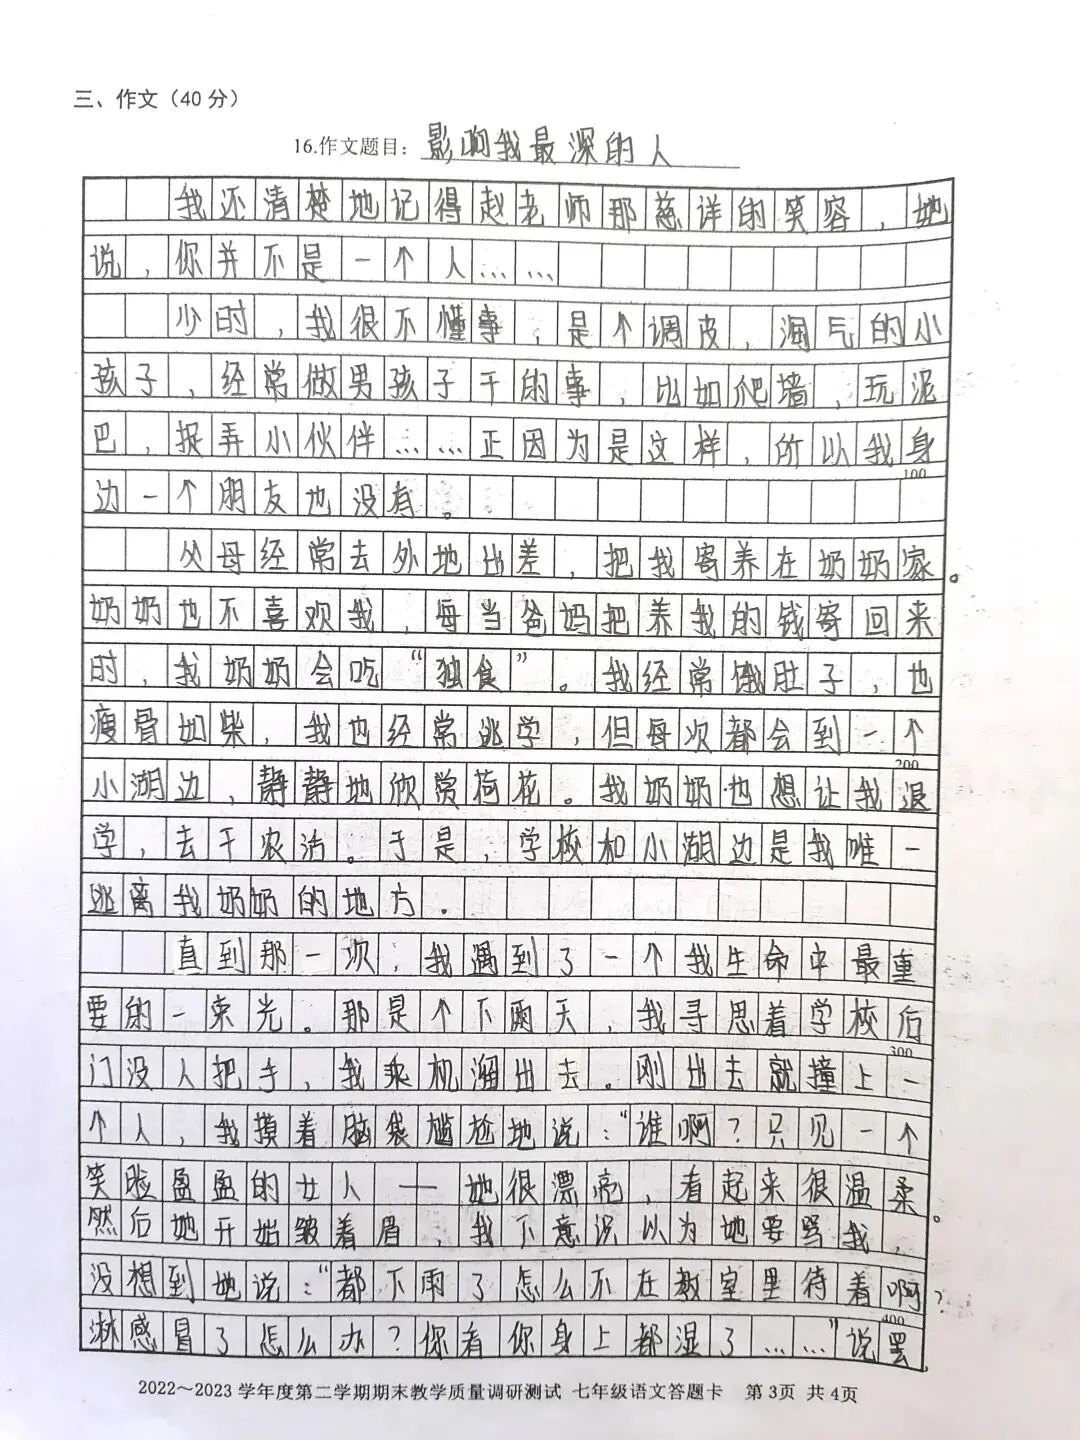 三、作文（40分）
16.作文题目：影响我最深的人
我还清楚地记得赵老师那慈详的笑容，她
说，你并不是一个人……
少时，我很不懂事，是个调皮，淘气的小
孩子，经常做男孩子干的事，比如爬墙，玩泥
巴，捉弄小伙伴……正因为是这样，所以我身
100
边一个朋友也没有。
父母经常去外地出差，把我寄养在奶奶家。
奶奶也不喜欢我，每当爸妈把养我的钱寄回来
时，我奶奶会吃“独食”。我经常饿肚子，也
瘦骨如柴，我也经常逃学，但每次都会到一个
200
小湖边，静静地欣赏荷花。我奶奶也想让我退
学，去干农活。于是，学校和小湖边是我唯一
逃离我奶奶的地方.
直到那一次，我遇到了一个我生命中最重
要的一束光。那是个下雨天，我寻思着学校后
300
门没人把手，我乘机溜出去.刚出去就撞上一
个人，我摸着脑袋尴尬地说：“谁啊？只见一个
笑脸盈盈的女人——她很漂亮，看起来很温柔。
然后她开始皱着眉，我下意识以为她要骂我，
没想到她说：“都下雨了怎么不在教室里待着啊？
400
淋感冒了怎么办？你看你身上都湿了……”说罢
2022～2023学年度第二学期期末教学质量调研测试 七年级语文答题卡 第3页 共4页